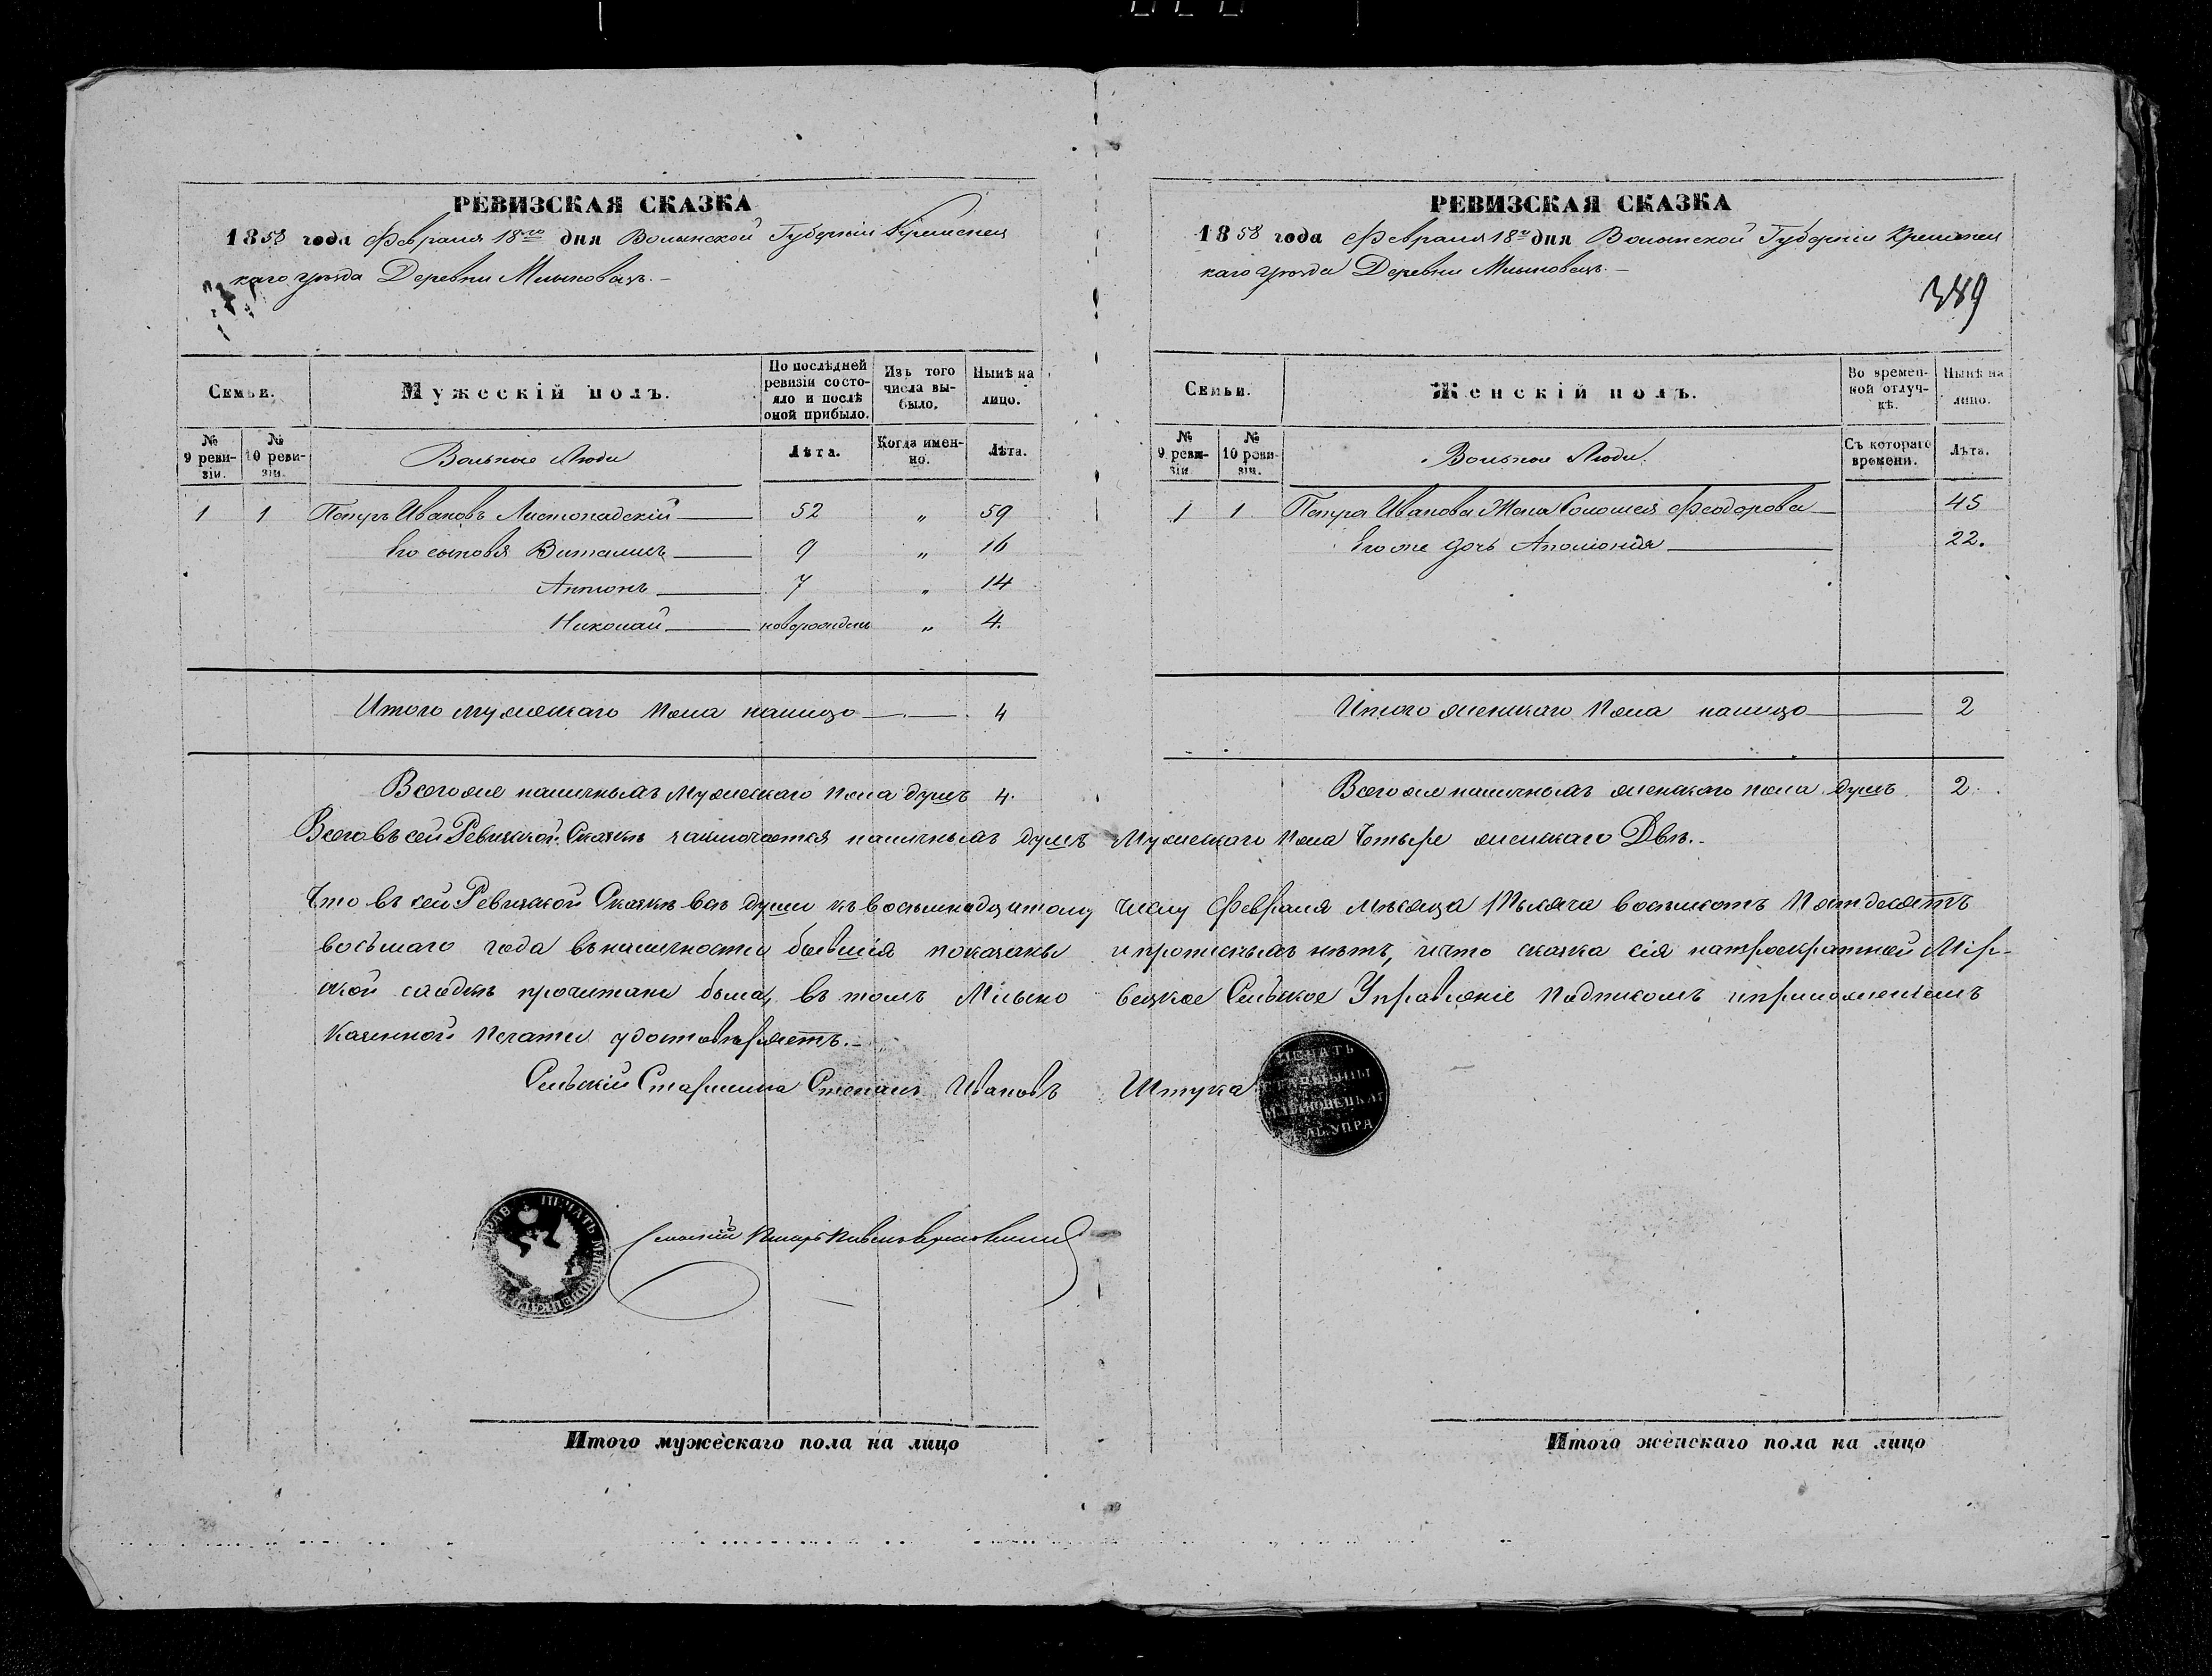 РЕВИЗСКАЯ СКАЗКА
1858 года Февраля 18го дня Волынской Губерніи Кременец
каго уѣзда Деревни Млыновецъ.
Семьи.
Мужескій полъ.
По послѣдней ревизіи состояло и послѣ оной прибыло.
Изъ того числа выбыло.
Нынѣ на лицо.
№ 9 ревизіи.
№ 10 ревизіи.
Вольные Люди
Лѣта.
Когда именно.
Лѣта.
1 1 Петръ Ивановъ Листопадскій 52 " 59
Его сыновья Виталисъ 9 " 16
Антонъ 7 " 14
Николай новорожденъ " 4.
Итого мужескаго пола налицо 4
Всего же наличныхъ мужескаго пола душъ 4.
РЕВИЗСКАЯ СКАЗКА
1858 года Февраля 18го дня Волынской Губерніи Кременец
каго уѣзда Деревни Млыновецъ.
389
Семьи.
Женскій полъ.
Во временной отлучкѣ.
Нынѣ на лицо.
№ 9 ревизіи
№ 10 ревизіи.
Вольные Люди
Съ котораго времени.
Лѣта.
1 1 Петра Иванова Жена Соломея Феодорова 45
Его же дочь Аполіонія 22.
Итого женскаго пола налицо 2
Всего же наличныхъ женскаго пола душъ 2.
Всего въ сей Ревизской Сказкѣ заключается наличныхъ душъ Мужескаго пола Четыре женскаго Двѣ.
Что въ сей Ревизской Сказкѣ всѣ души къ восемнадцатому числу Февраля мѣсяца Тысяча восемьсотъ Пятдесятъ
восьмаго года въ наличности бывшія показаны и прописныхъ нѣтъ, и что сказка сія на троекратной Мір-
ской сходкѣ прочитана была, въ томъ Млыно вецкое Сельское Управленіе подписомъ и приложеніемъ
Казенной Печати удостовѣряетъ.
Сельскій Старшина Степанъ Ивановъ Штука
ПЕЧАТЬ
Сельскій Писарь
Итого мужескаго пола на лицо
Итого женскаго пола на лицо